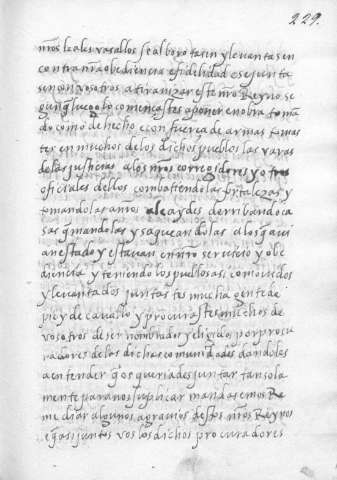 229.
nros leales vasallos se alborotasen y levantasen
contra nra obediencia e fidelidad e se junta
sen con vosotros a tiranizar este nro Reyno se
gun q luego lo començastes a poner en obra toman
do como de hecho e con fuerça de armas tomas
tes en muchos de los dichos pueblos las varas
de las justicias a los nros corregidores y otros
oficiales dellos combatiendo las fortalezas y
tomandolas a nros alcaydes derribando ca
sas q mandolas y saqueandolas a los q avi
an estado y estavan en nro servicio y obe
diencia y teniendo los pueblos asi comovidos
y levantados juntastes mucha gente de
pie y de cavallo y procurastes muchos de
vosotros de ser nombrados y eligidos por procu
radores de las dichas comunidades dandoles
a entender q os queriades juntar tan sola
mente para nos suplicar mandasemos Re
mediar algunos agravios destos nros Reynos
e q asi juntos vos los dichos procuradores